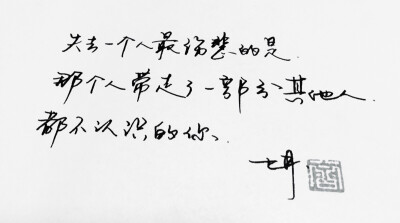 失去一个人最伤悲的是
那个人带走了一部分其他人
都不认识的你、